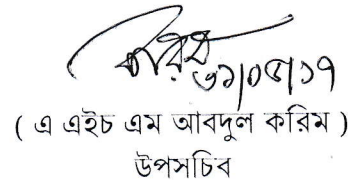 করিম
৩১/০৫/১৭
( এ এইচ এম আবদুল করিম )
উপসচিব